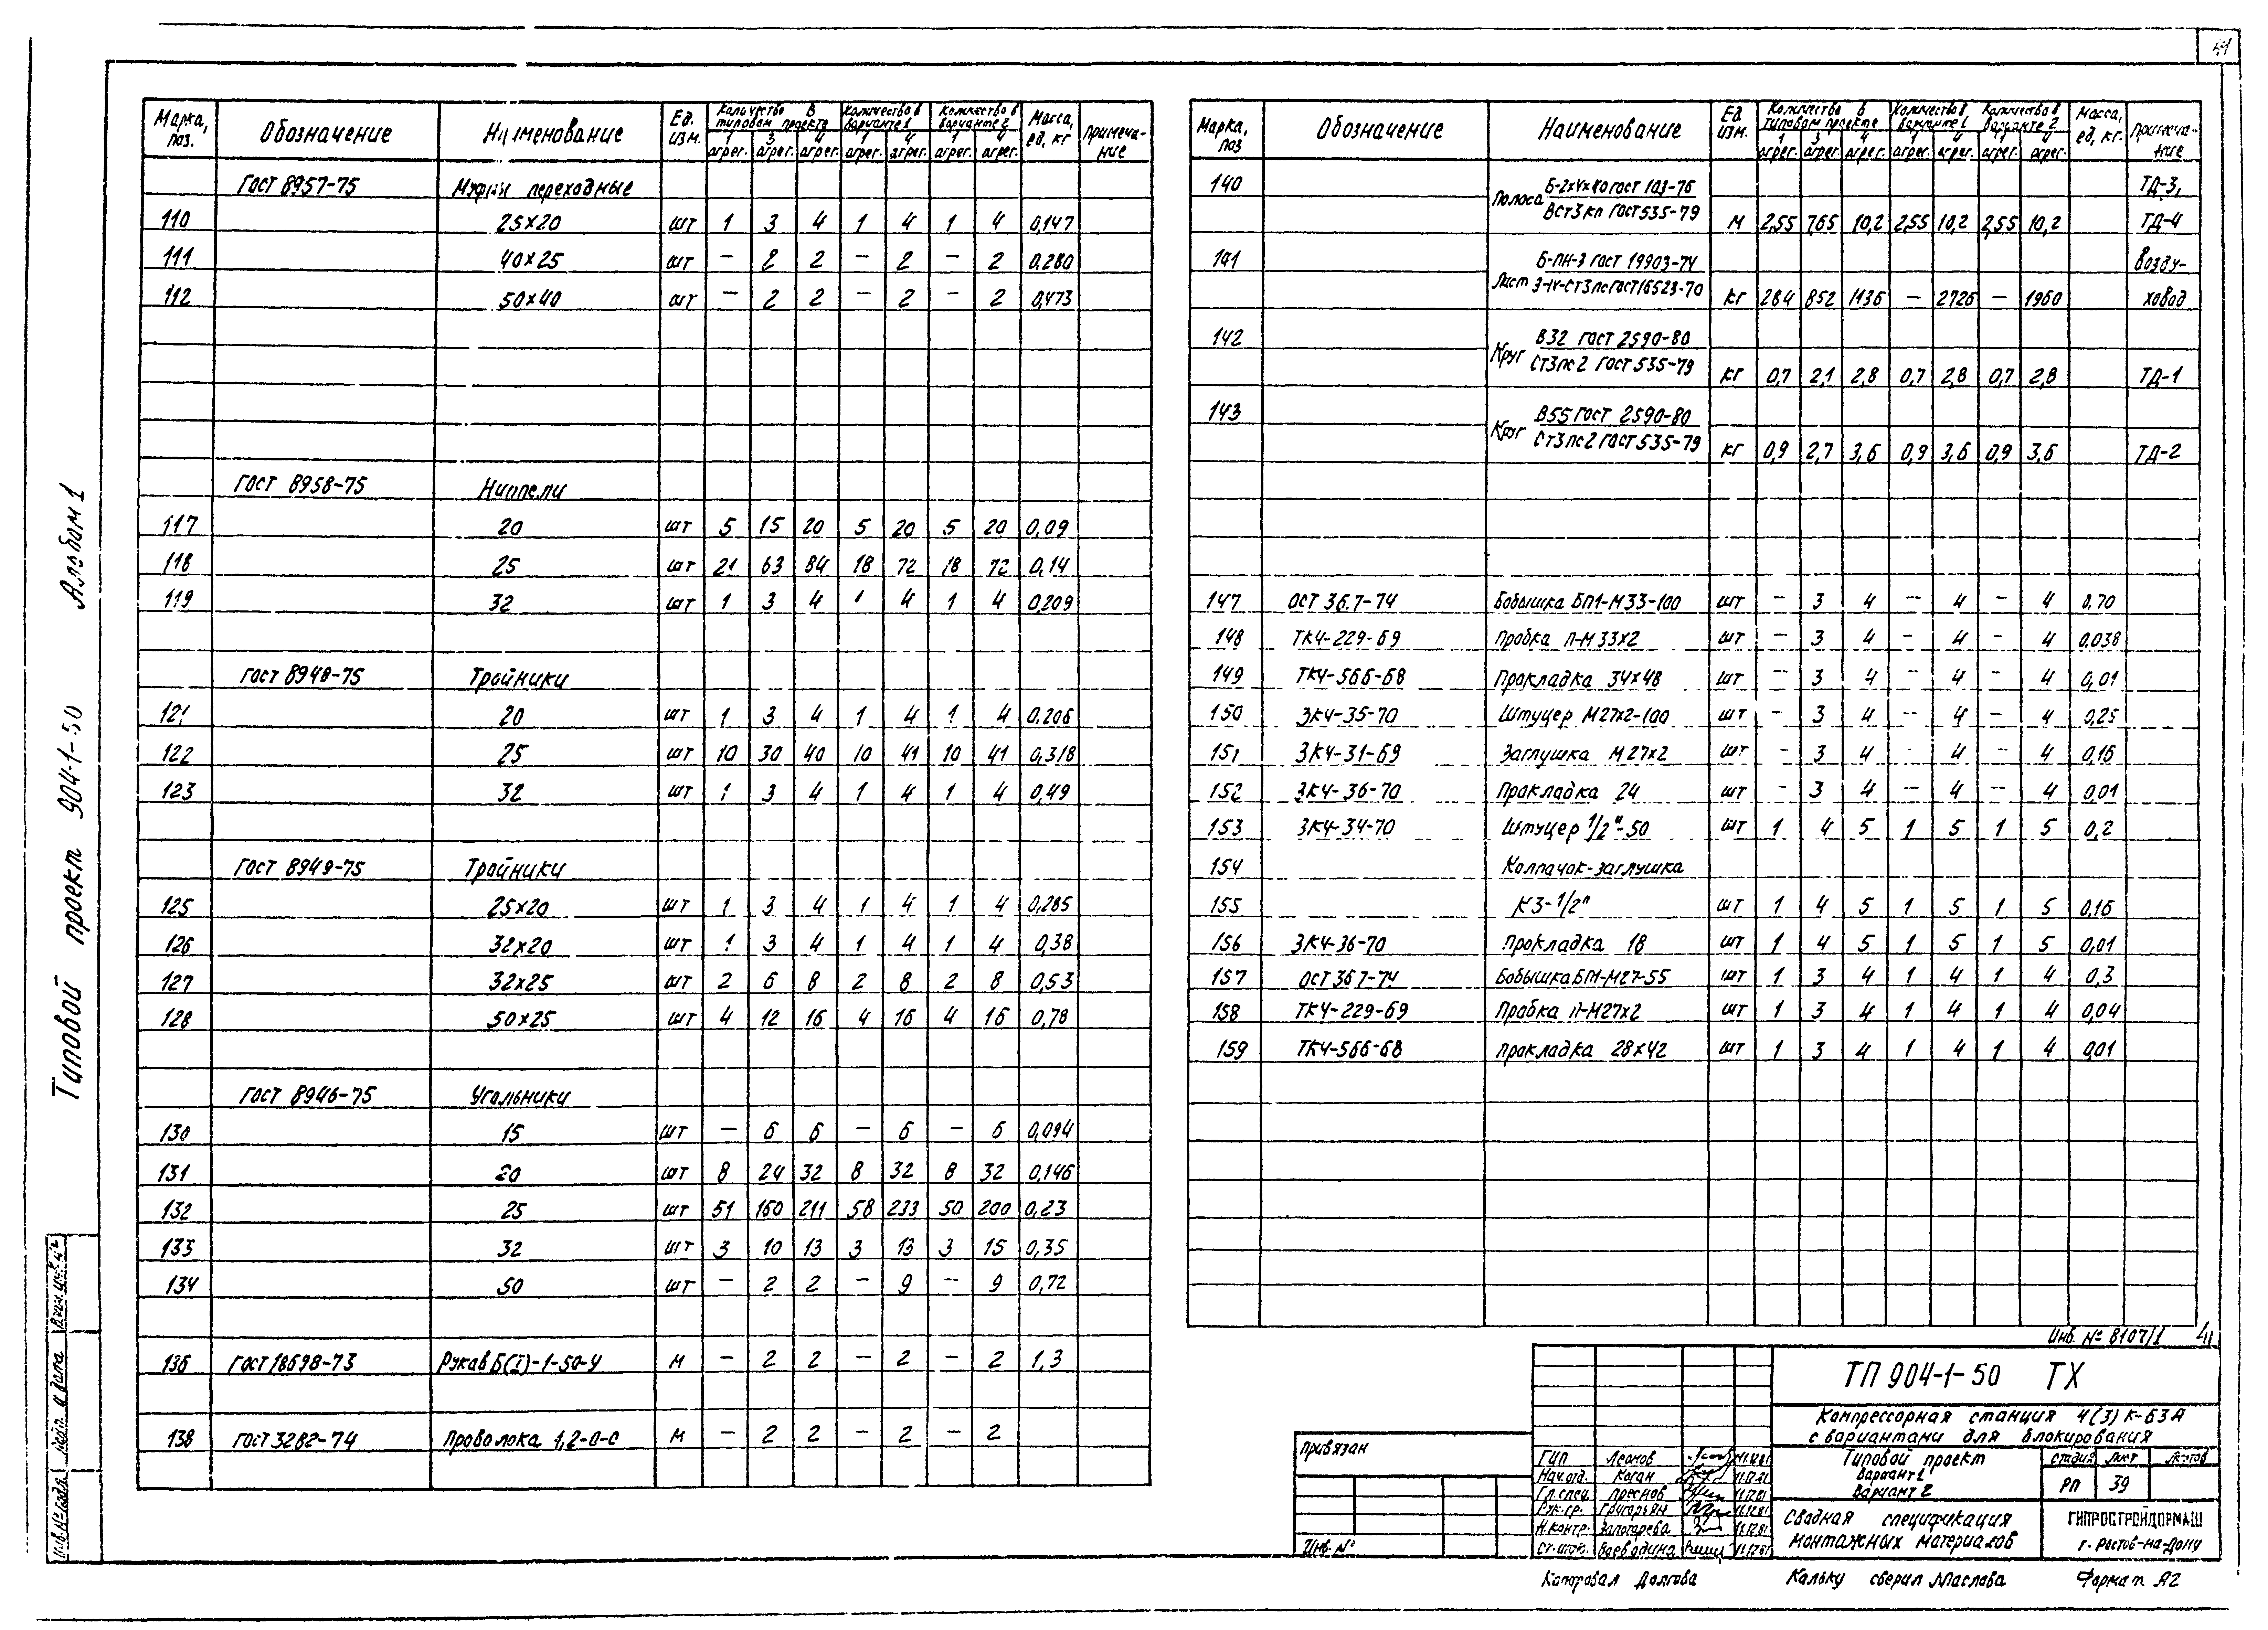 41
Типовой проект 904-1-50 Альбом 1
Марка, поз. Обозначение Наименование Ед. изм. Количество в типовом проекте Количество в варианте 1 Количество в варианте 2 Масса, ед, кг Примеча-ние
1 агрег. 3 агрег. 4 агрег. 1 агрег. 4 агрег. 1 агрег. 4 агрег.
ГОСТ 8957-75 Муфты переходные
110 25×20 шт 1 3 4 1 4 1 4 0,147
111 40×25 шт – 2 2 – 2 – 2 0.280
112 50×40 шт – 2 2 – 2 – 2 0,473
ГОСТ 8958-75 Ниппели
117 20 шт 5 15 20 5 20 5 20 0,09
118 25 шт 21 63 84 18 72 18 72 0,14
119 32 шт 1 3 4 1 4 1 4 0,209
ГОСТ 8948-75 Тройники
121 20 шт 1 3 4 1 4 1 4 0,206
122 25 шт 10 30 40 10 41 10 41 0,318
123 32 шт 1 3 4 1 4 1 4 0,49
ГОСТ 8949-75 Тройники
125 25×20 шт 1 3 4 1 4 1 4 0,285
126 32×20 шт 1 3 4 1 4 1 4 0,38
127 32×25 шт 2 6 8 2 8 2 8 0,53
128 50×25 шт 4 12 16 4 16 4 16 0,78
ГОСТ 8946-75 Угольники
130 15 шт – 6 6 – 6 – 6 0,094
131 20 шт 8 24 32 8 32 8 32 0,146
132 25 шт 51 160 211 58 233 50 200 0,23
133 32 шт 3 10 13 3 13 3 15 0,35
134 50 шт – 2 2 – 9 – 9 0,72
136 ГОСТ 18698-73 Рукав Б(I)-1-50-У м – 2 2 – 2 – 2 1,3
138 ГОСТ 3282-74 Проволока 1,2-О-С м – 2 2 – 2 – 2
Марка, поз Обозначение Наименование Ед изм. Количество в типовом проекте Количество в варианте 1 Количество в варианте 2 Масса, ед, кг. Примеча-ние
1 агрег. 3 агрег. 4 агрег. 1 агрег. 4 агрег. 1 агрег. 4 агрег.
140 Б-2×4×40 ГОСТ 103-76 ТД-3,
Полоса ВСт3кп ГОСТ 535-79 м 2,55 7,65 10,2 2,55 10,2 2,55 10,2 ТД-4
141 Б-ПН-3 ГОСТ 19903-74 Возду-
Лист 3-IV-Ст3пс ГОСТ 16523-70 кг 284 852 1136 – 2726 – 1960 ховод
142 В32 ГОСТ 2590-80
Круг Ст3пс2 ГОСТ 535-79 кг 0,7 2,1 2,8 0,7 2,8 0,7 2,8 ТД-1
143 В55 ГОСТ 2590-80
Круг Ст3пс2 ГОСТ 535-79 кг 0,9 2,7 3,6 0,9 3,6 0,9 3,6 ТД-2
147 ОСТ 36.7-74 Бобышка БП1-М33-100 шт – 3 4 – 4 – 4 0,70
148 ТК4-229-69 Пробка П-М33×2 шт – 3 4 – 4 – 4 0.038
149 ТК4-566-68 Прокладка 34×48 шт – 3 4 – 4 – 4 0,01
150 ЗК4-35-70 Штуцер М27×2-100 шт – 3 4 – 4 – 4 0,25
151 ЗК4-31-69 Заглушка М27×2 шт – 3 4 – 4 – 4 0,16
152 ЗК4-36-70 Прокладка 24 шт – 3 4 – 4 – 4 0,01
153 ЗК4-34-70 Штуцер 1/2"-50 шт 1 4 5 1 5 1 5 0,2
154 Колпачок-заглушка
155 КЗ-1/2" шт 1 4 5 1 5 1 5 0,16
156 ЗК4-36-70 Прокладка 18 шт 1 4 5 1 5 1 5 0,01
157 ОСТ 36 7-74 Бобышка БП1-М27-55 шт 1 3 4 1 4 1 4 0,3
158 ТК4-229-69 Пробка П-М27×2 шт 1 3 4 1 4 1 4 0,04
159 ТК4-566-68 Прокладка 28×42 шт 1 3 4 1 4 1 4 0,01
Инв. № 8107/1 41
ТП 904-1-50 ТХ
Компрессорная станция 4(3) К-63А
с вариантами для блокирования
Типовой проект
Вариант 1
Вариант 2
Стадия Лист Листов
РП 39
Сводная спецификация
монтажных материалов
ГИПРОСТРОЙДОРМАШ
г. Ростов-на-Дону
Привязан
Инв. №
ГИП Леонов 11.12.81
Нач.отд. Коган 11.12.81
Гл.спец. Преснов 11.12.81
Рук.гр. Григорьян 11.12.81
Н.контр. Золотарева 11.12.81
Ст.инж. Воеводина 11.12.81
Инв.№ подл. Подп. и дата Взам.инв.№
Копировал Долгова Кальку сверил Маслава Формат А2